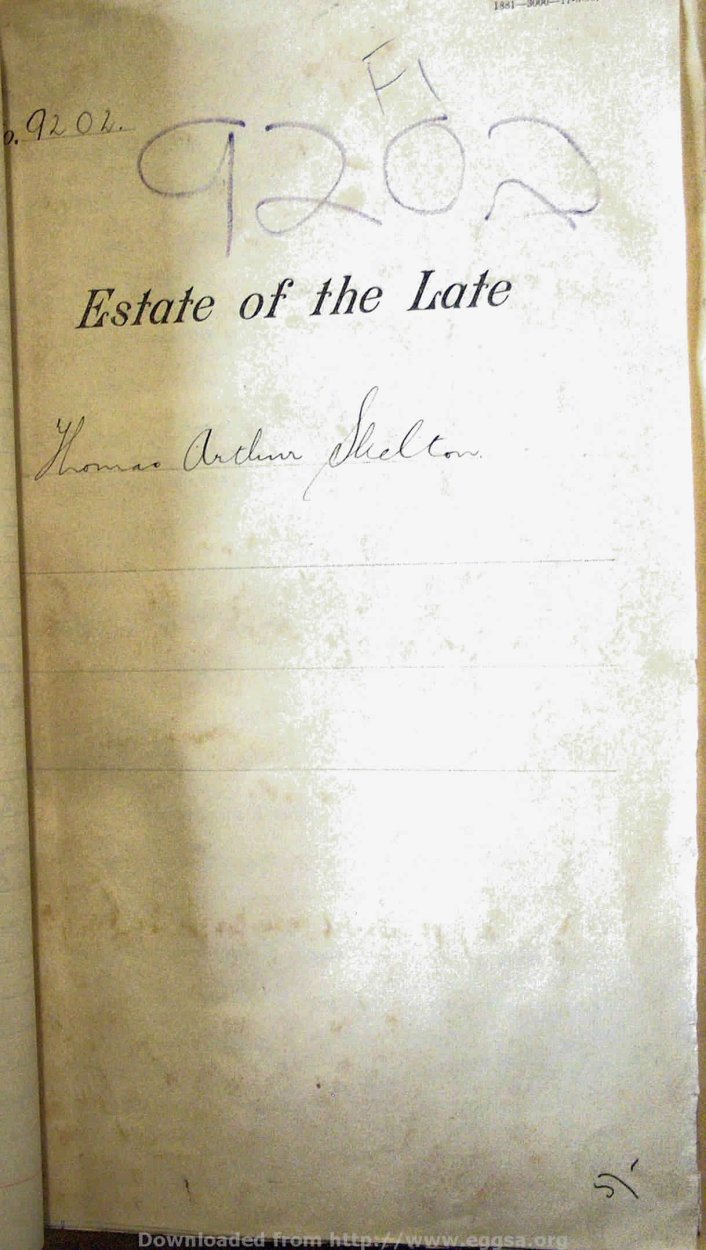 1881—3000—
F1
o. 9202.
9202
Estate of the Late
Thomas Arthur Skelton.
Downloaded from http://www.eggsa.org